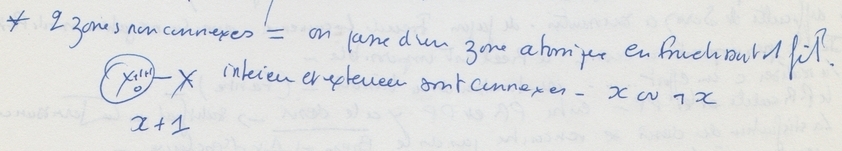 * 2 zones non connexes = on passe d'un zone atomique en franchissant 1 fft.
X interieur et exterieur sont connexes - x ou ¬ x
x + 1